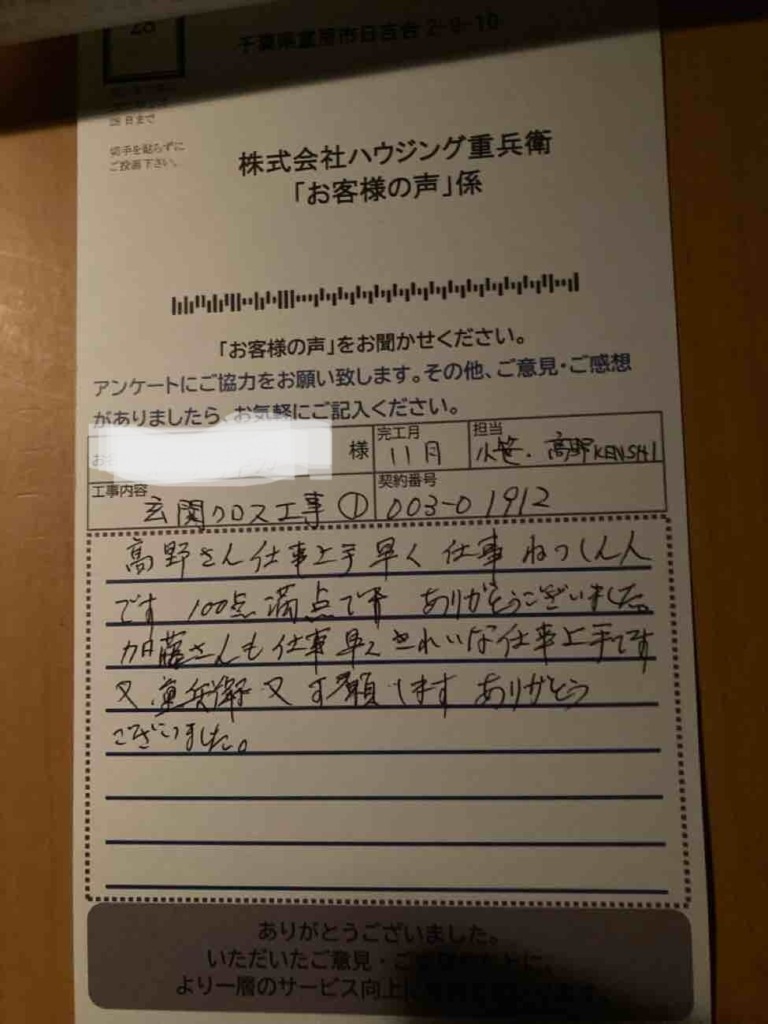 28
千葉県富里市日吉台 2-9-10
28日まで
切手を貼らずに
ご投函下さい。
株式会社ハウジング重兵衛
「お客様の声」係
「お客様の声」をお聞かせください。
アンケートにご協力をお願い致します。その他、ご意見・ご感想
がありましたら、お気軽にご記入ください。
様
完工月
11月
担当
小笹. 高野KENSHI
工事内容
玄関クロス工事 ①
契約番号
003-01912
高野さん仕事上手早く 仕事ねっしん人
です 100点満点です ありがとうございました。
加藤さんも仕事早くきれいな仕事上手です
又重兵衛又お願します ありがとう
ございました。
ありがとうございました。
いただいたご意見・ご
より一層のサービス向上に